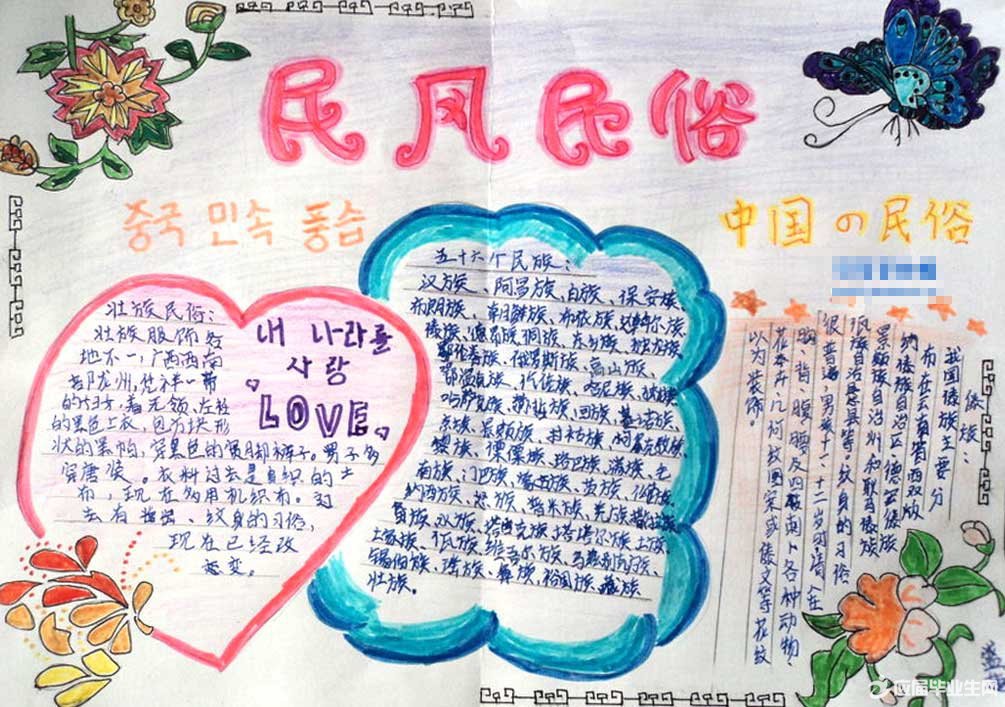 民风民俗
중국 민속 풍습
中国の民俗
壮族民俗:
壮族服饰各
地不一,广西西南
部龙州,凭祥一带
的妇女,着无领、左衽
的黑色上衣,包方块形
状的黑帕,穿黑色的宽脚裤子。男子多
穿唐装。衣料过去是自织的土
布,现在多用机织布。过
去有 纹身的习俗,
现在已经改
变。
내 나라를
사랑
LOVE
五十六个民族:
汉族、阿昌族、白族、保安族、
布朗族、朝鲜族、布依族、达斡尔族
傣族、德昂族、侗族、东乡族、独龙族
鄂伦春族、俄罗斯族、高山族、
鄂温克族、仡佬族、哈尼族、
哈萨克族、赫哲族、回族、基诺族、
京族、景颇族、
黎族、傈僳族、珞巴族、满族、毛
南族、门巴族、苗族、
纳西族、怒族、普米族、羌族、撒拉族
畲族、水族、塔吉克族、塔塔尔族、土族、
土家族、佤族、维吾尔族、乌孜别克族、
锡伯族、瑶族、彝族、裕固族、藏族
壮族。
傣族:
我国傣族主要分
布在云南省西双版
纳傣族自治区、德宏傣族
景颇族自治州和耿马傣族
佤族自治县等。纹身的习俗
很普遍,男孩十一、十二岁即请人在
胸、背、腹、腰及四肢刺上各种动物、
花卉、几何纹图案或傣文等花纹
以为装饰。
应届毕业生网